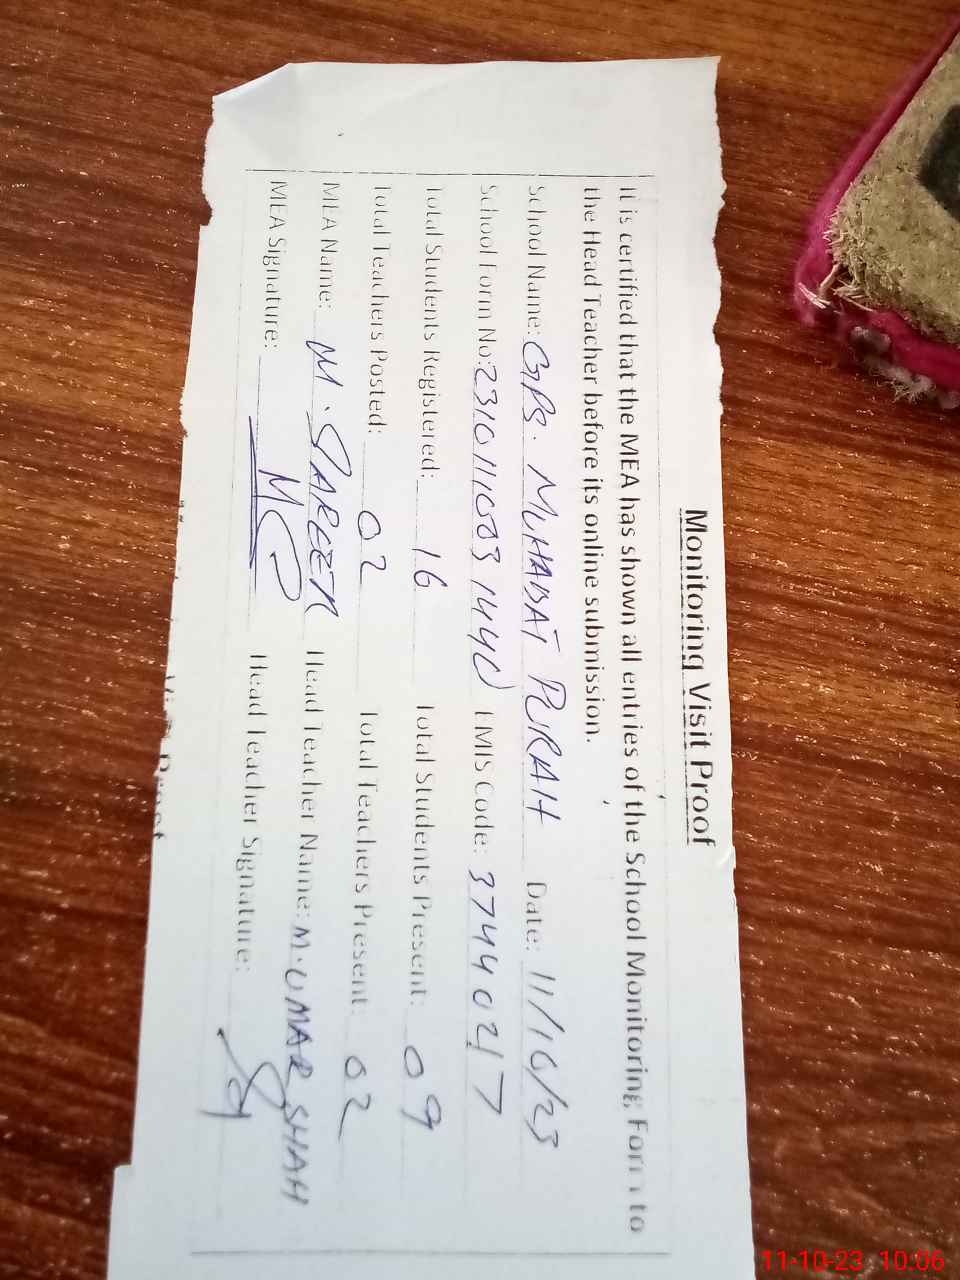 Monitoring Visit Proof
It is certified that the MEA has shown all entries of the School Monitoring Form to
the Head Teacher before its online submission.
School Name: GPS. MUHABAT PURAH Date: 11/10/23
School Form No: EMIS Code: 37440217
Total Students Registered: 16 Total Students Present: 09
Total Teachers Posted: 02 Total Teachers Present: 02
MEA Name: M. Head Teacher Name: M. UMAR SHAH
MEA Signature: Head Teacher Signature:
11-10-23 10:06